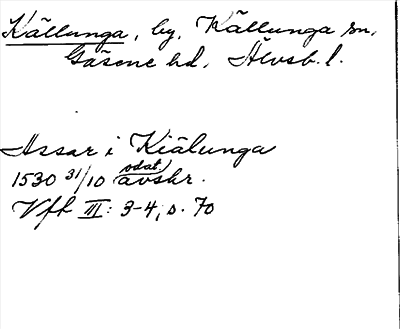 Källunga, by. Källunga sn,
Gäsene hd, Älvsb. l.
Assar i Kiälunga
1530 31/10 odat. avskr.
Vfh III: 3-4, s. 70